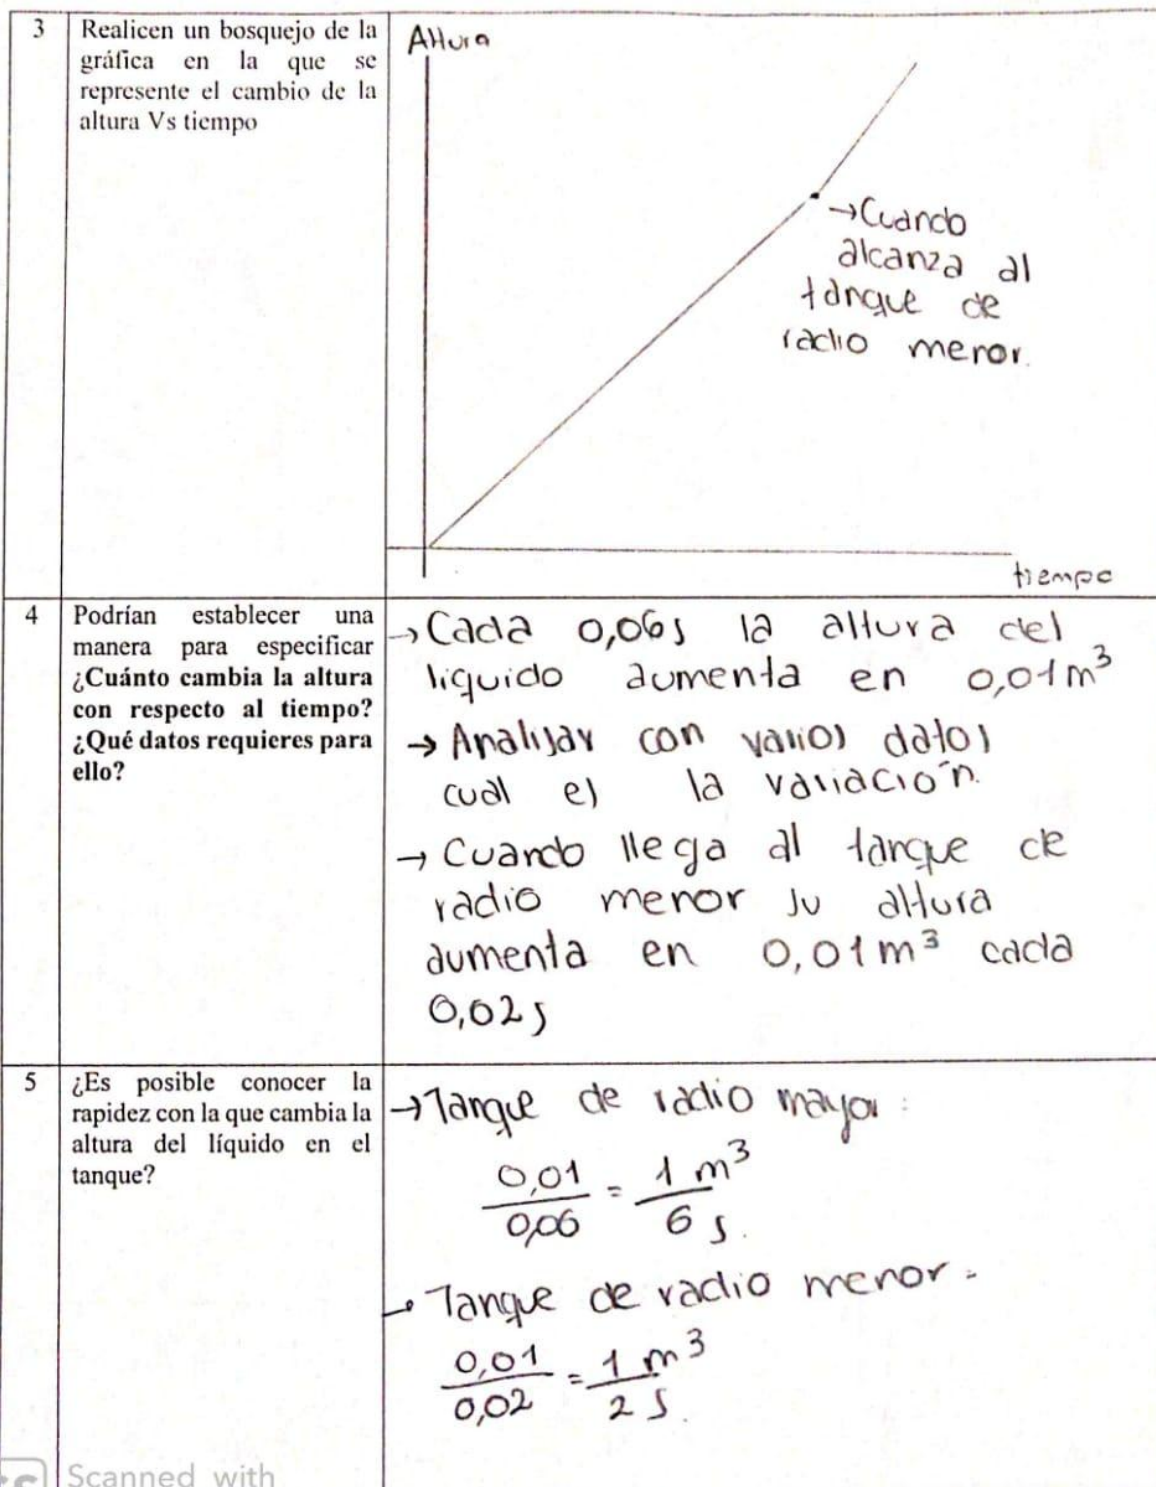 3
Realicen un bosquejo de la
gráfica en la que se
represente el cambio de la
altura Vs tiempo
Altura
→Cuando
alcanza al
tanque de
radio menor.
tiempo
4
Podrían establecer una
manera para especificar
¿Cuánto cambia la altura
con respecto al tiempo?
¿Qué datos requieres para
ello?
→ Cada 0,06s la altura del
liquido aumenta en 0,01m³
→ Analisar con varios datos
cual es la variación.
→ Cuando llega al tanque de
radio menor su altura
aumenta en 0,01m³ cada
0,02s
5
¿Es posible conocer la
rapidez con la que cambia la
altura del líquido en el
tanque?
→Tanque de radio mayor:
0,01/0,06 = 1 m³/6 s.
→ Tanque de radio menor.
0,01/0,02 = 1 m³/2 s.
Scanned with